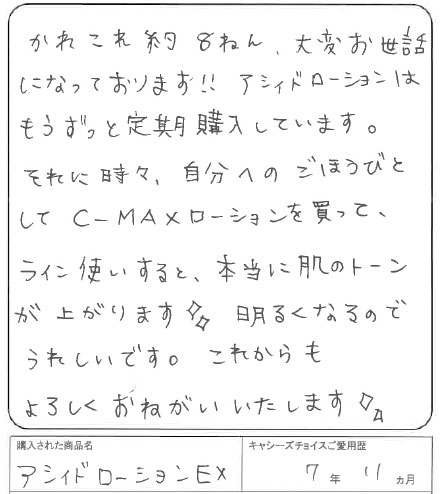 かれこれ約8ねん、大変お世話
になっております!! アシィドローションは
もうずっと定期購入しています。
それに時々、自分へのごほうびと
して C-MAXローションを買って、
ライン使いすると、本当に肌のトーン
が上がります 明るくなるので
うれしいです。これからも
よろしくおねがいいたします
購入された商品名
アシィドローションEX
キャシーズチョイスご愛用歴
7年11ヵ月